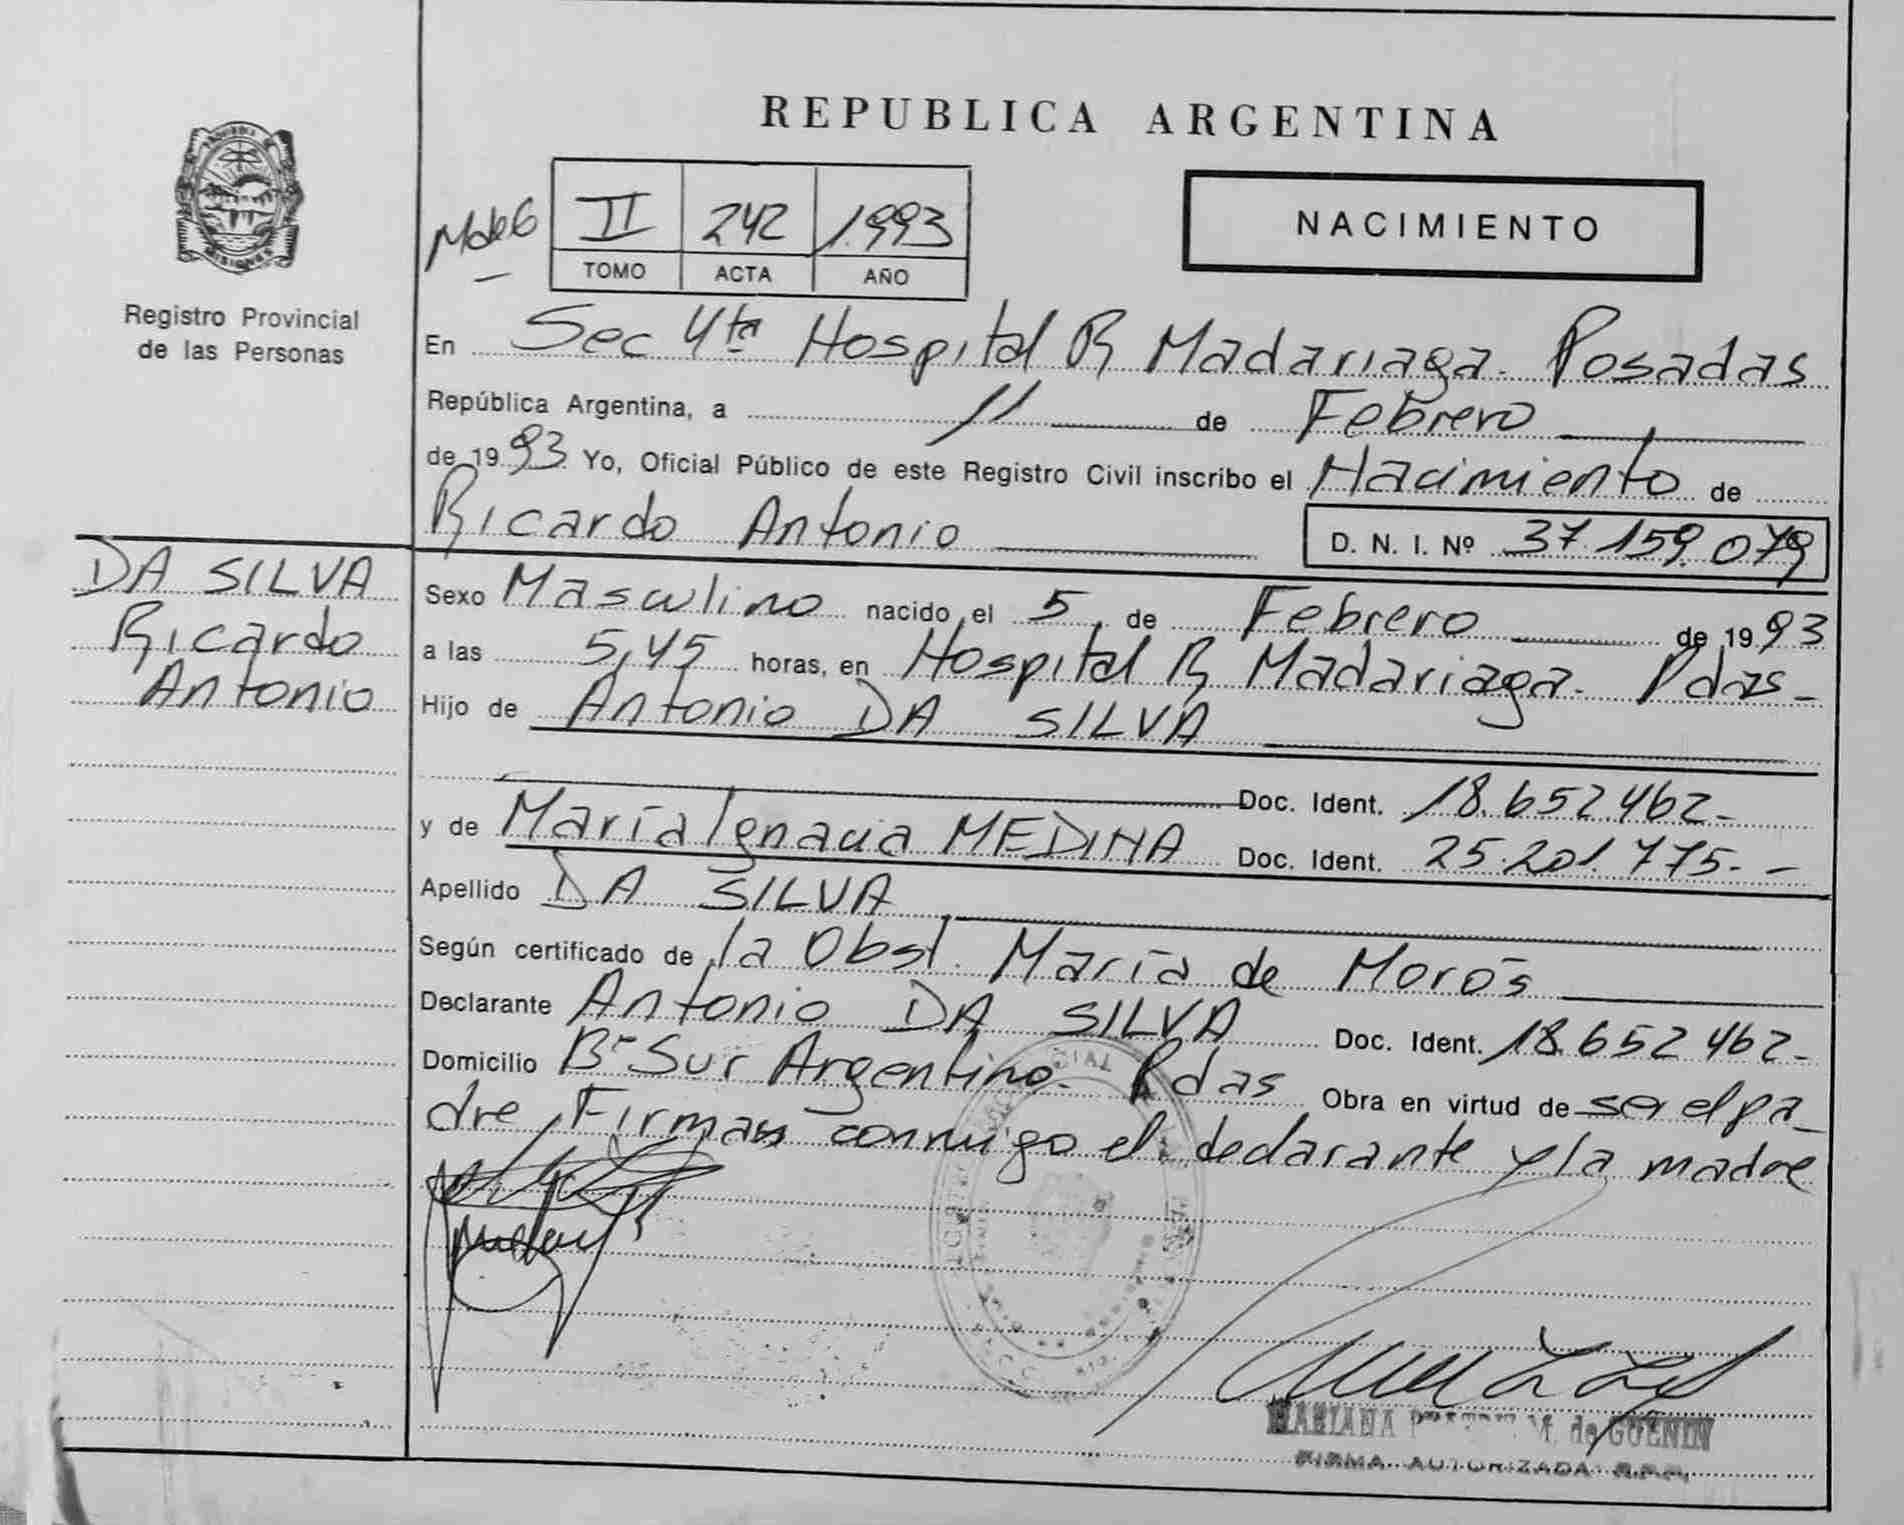 REPUBLICA ARGENTINA
MISIONES
Registro Provincial
de las Personas
II 242 1.993
TOMO ACTA AÑO
NACIMIENTO
En Sec 4ta Hospital R Madariaga. Posadas
República Argentina, a 11 de Febrero
de 1993 Yo, Oficial Público de este Registro Civil inscribo el Nacimiento de
Ricardo Antonio D. N. I. Nº 37.159.079
DA SILVA
Ricardo
Antonio
Sexo Masculino nacido el 5 de Febrero de 1993
a las 5,45 horas, en Hospital R Madariaga. Pdas-
Hijo de Antonio DA SILVA
Doc. Ident. 18.652.462-
y de María Ignacia MEDINA Doc. Ident. 25.201.775.-
Apellido DA SILVA
Según certificado de la Obst. María de Morós
Declarante Antonio DA SILVA Doc. Ident. 18.652 462-
Domicilio Bº Sur Argentino. Pdas Obra en virtud de ser el pa-
dre, Firman conmigo el declarante y la madre
MARIANA M. de GUENIN
FIRMA AUTORIZADA